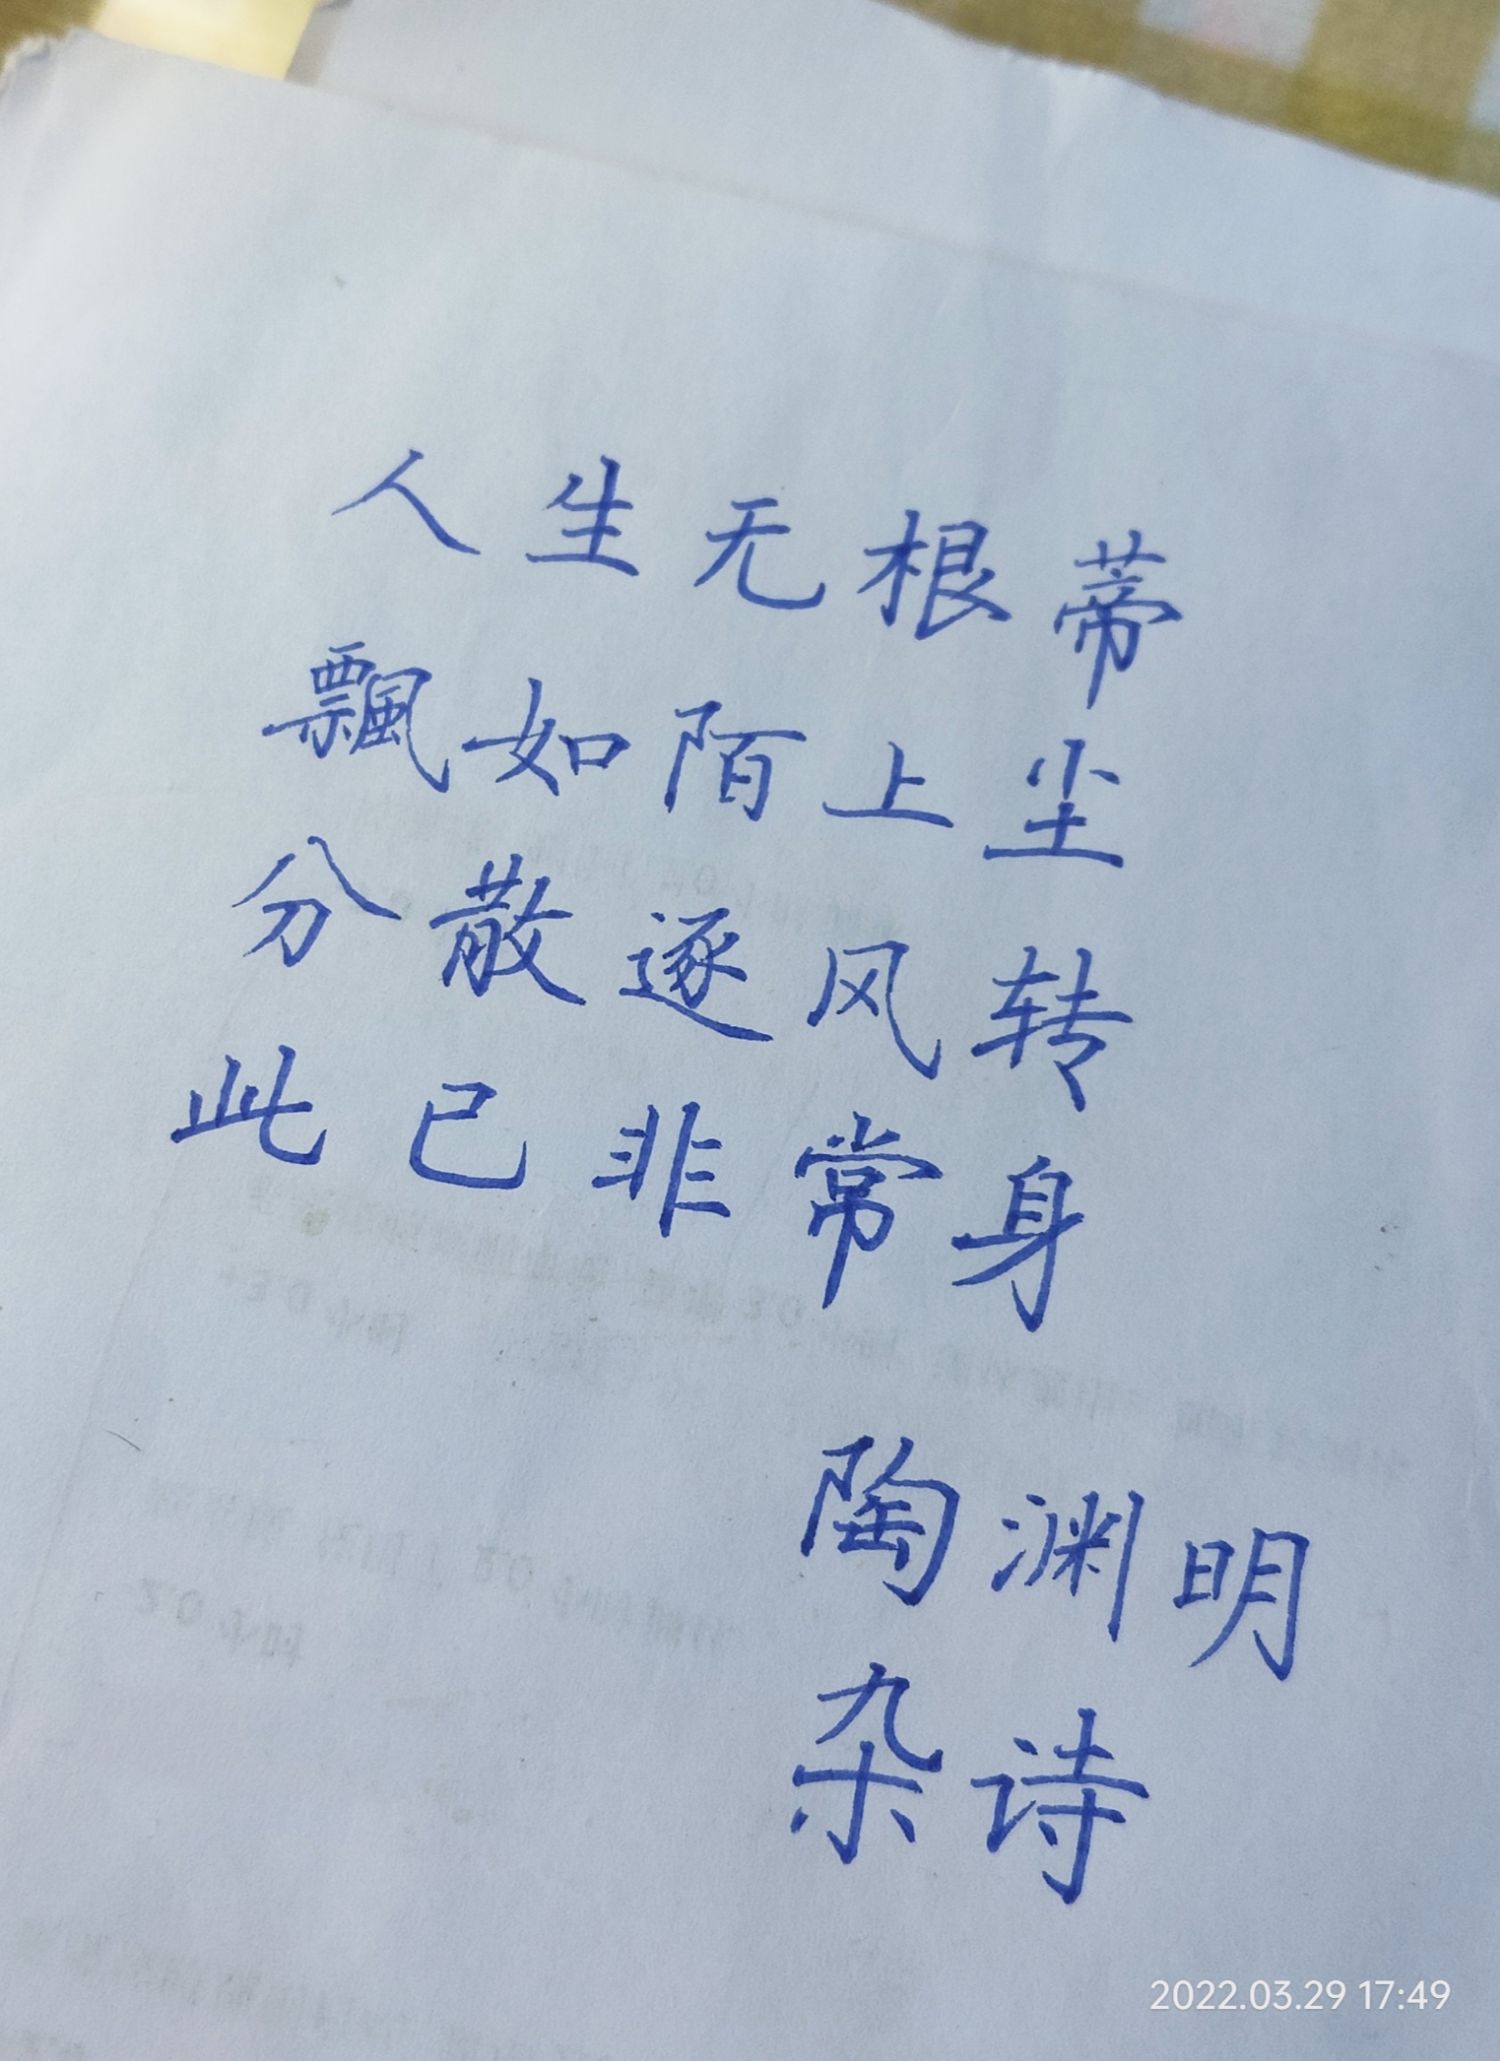 人生无根蒂
飘如陌上尘
分散逐风转
此已非常身
陶渊明
杂诗
2022.03.29 17:49